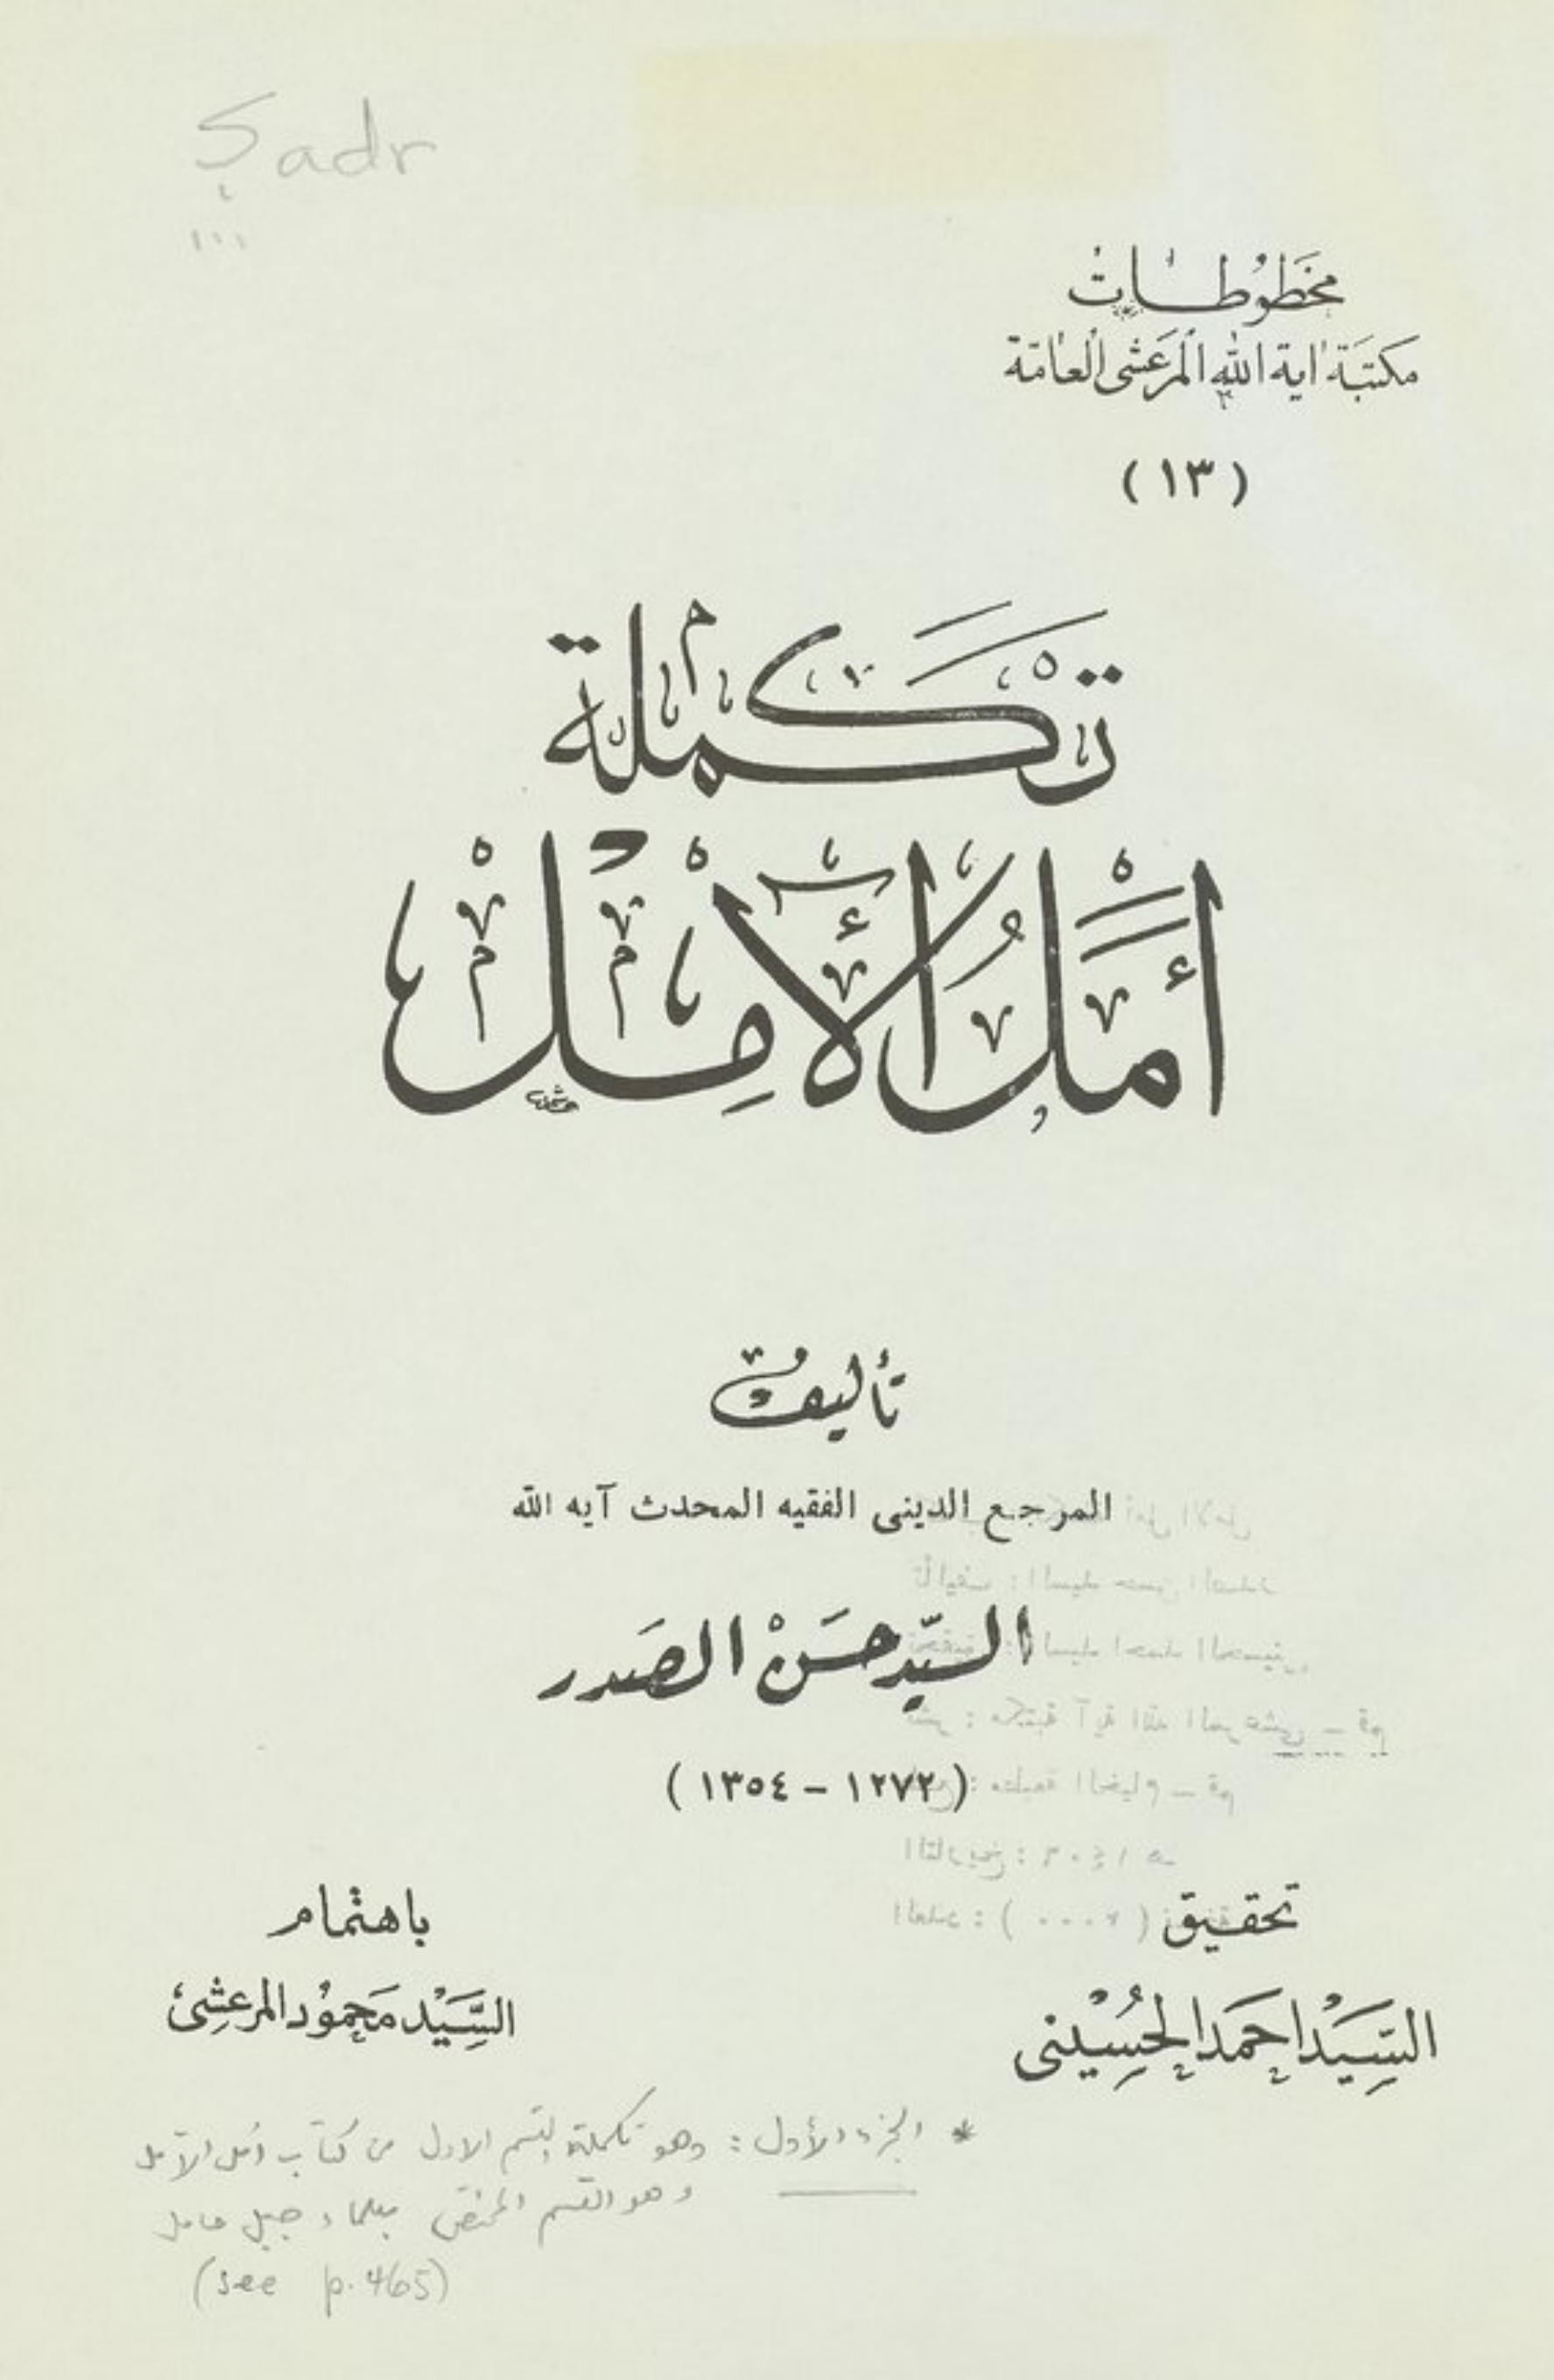 Ṣadr
مخطوطات
مكتبة آية الله المرعشى العامة
(١٣)
تكملة
أمل الآمل
تأليف
المرجع الدينى الفقيه المحدث آيه الله
السيد حسن الصدر
(١٢٧٢ - ١٣٥٤)
تحقيق
السيد احمد الحسينى
باهتمام
السيد محمود المرعشى
* الجزء الأول : وهو تكملة القسم الاول من كتاب أمل الآمل
وهو القسم المختص بعلماء جبل عامل
(see p. 465)